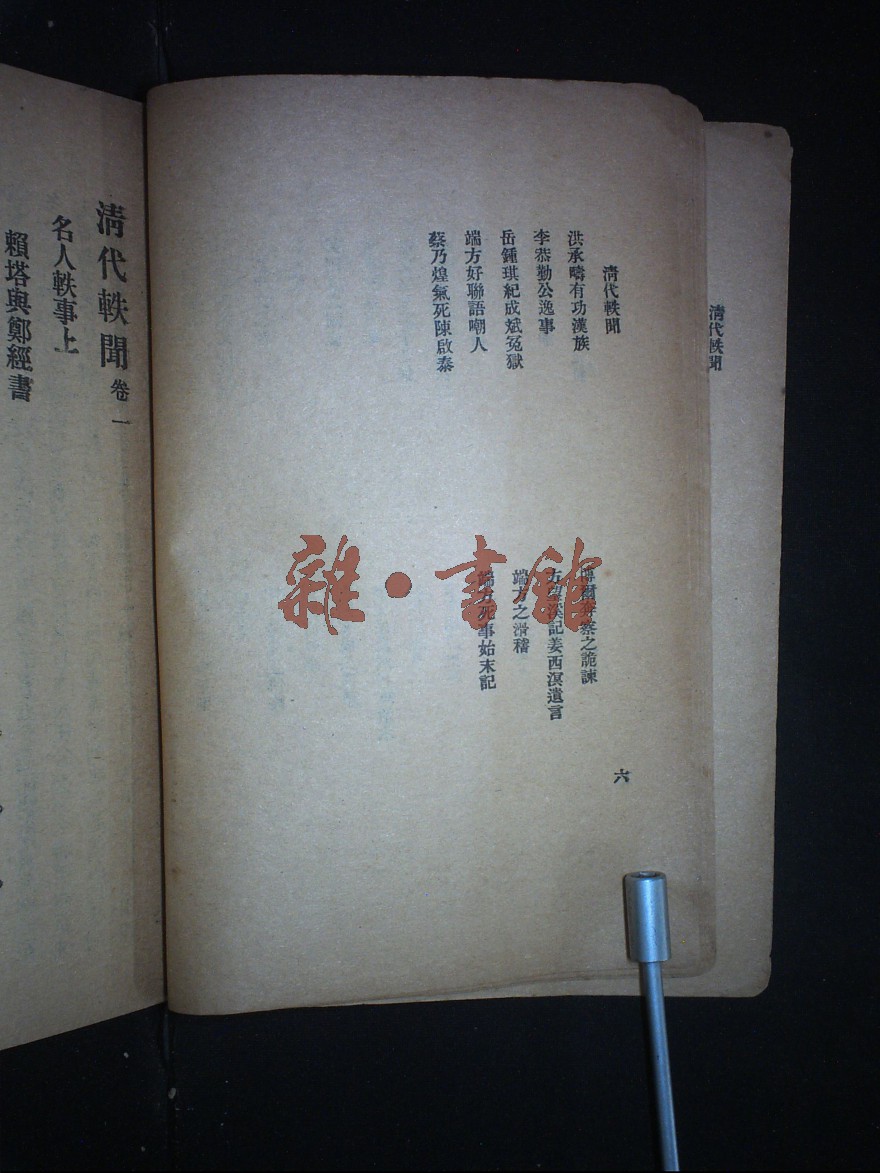 清代軼聞
清代軼聞
六
洪承疇有功漢族
博爾奔察之詭諫
李恭勤公逸事
方望溪記姜西溟遺言
岳鍾琪紀成斌冤獄
端方之滑稽
端方好聯語嘲人
端方死事始末記
蔡乃煌氣死陳啟泰
雜·書館
清代軼聞 卷一
名人軼事上
賴塔與鄭經書